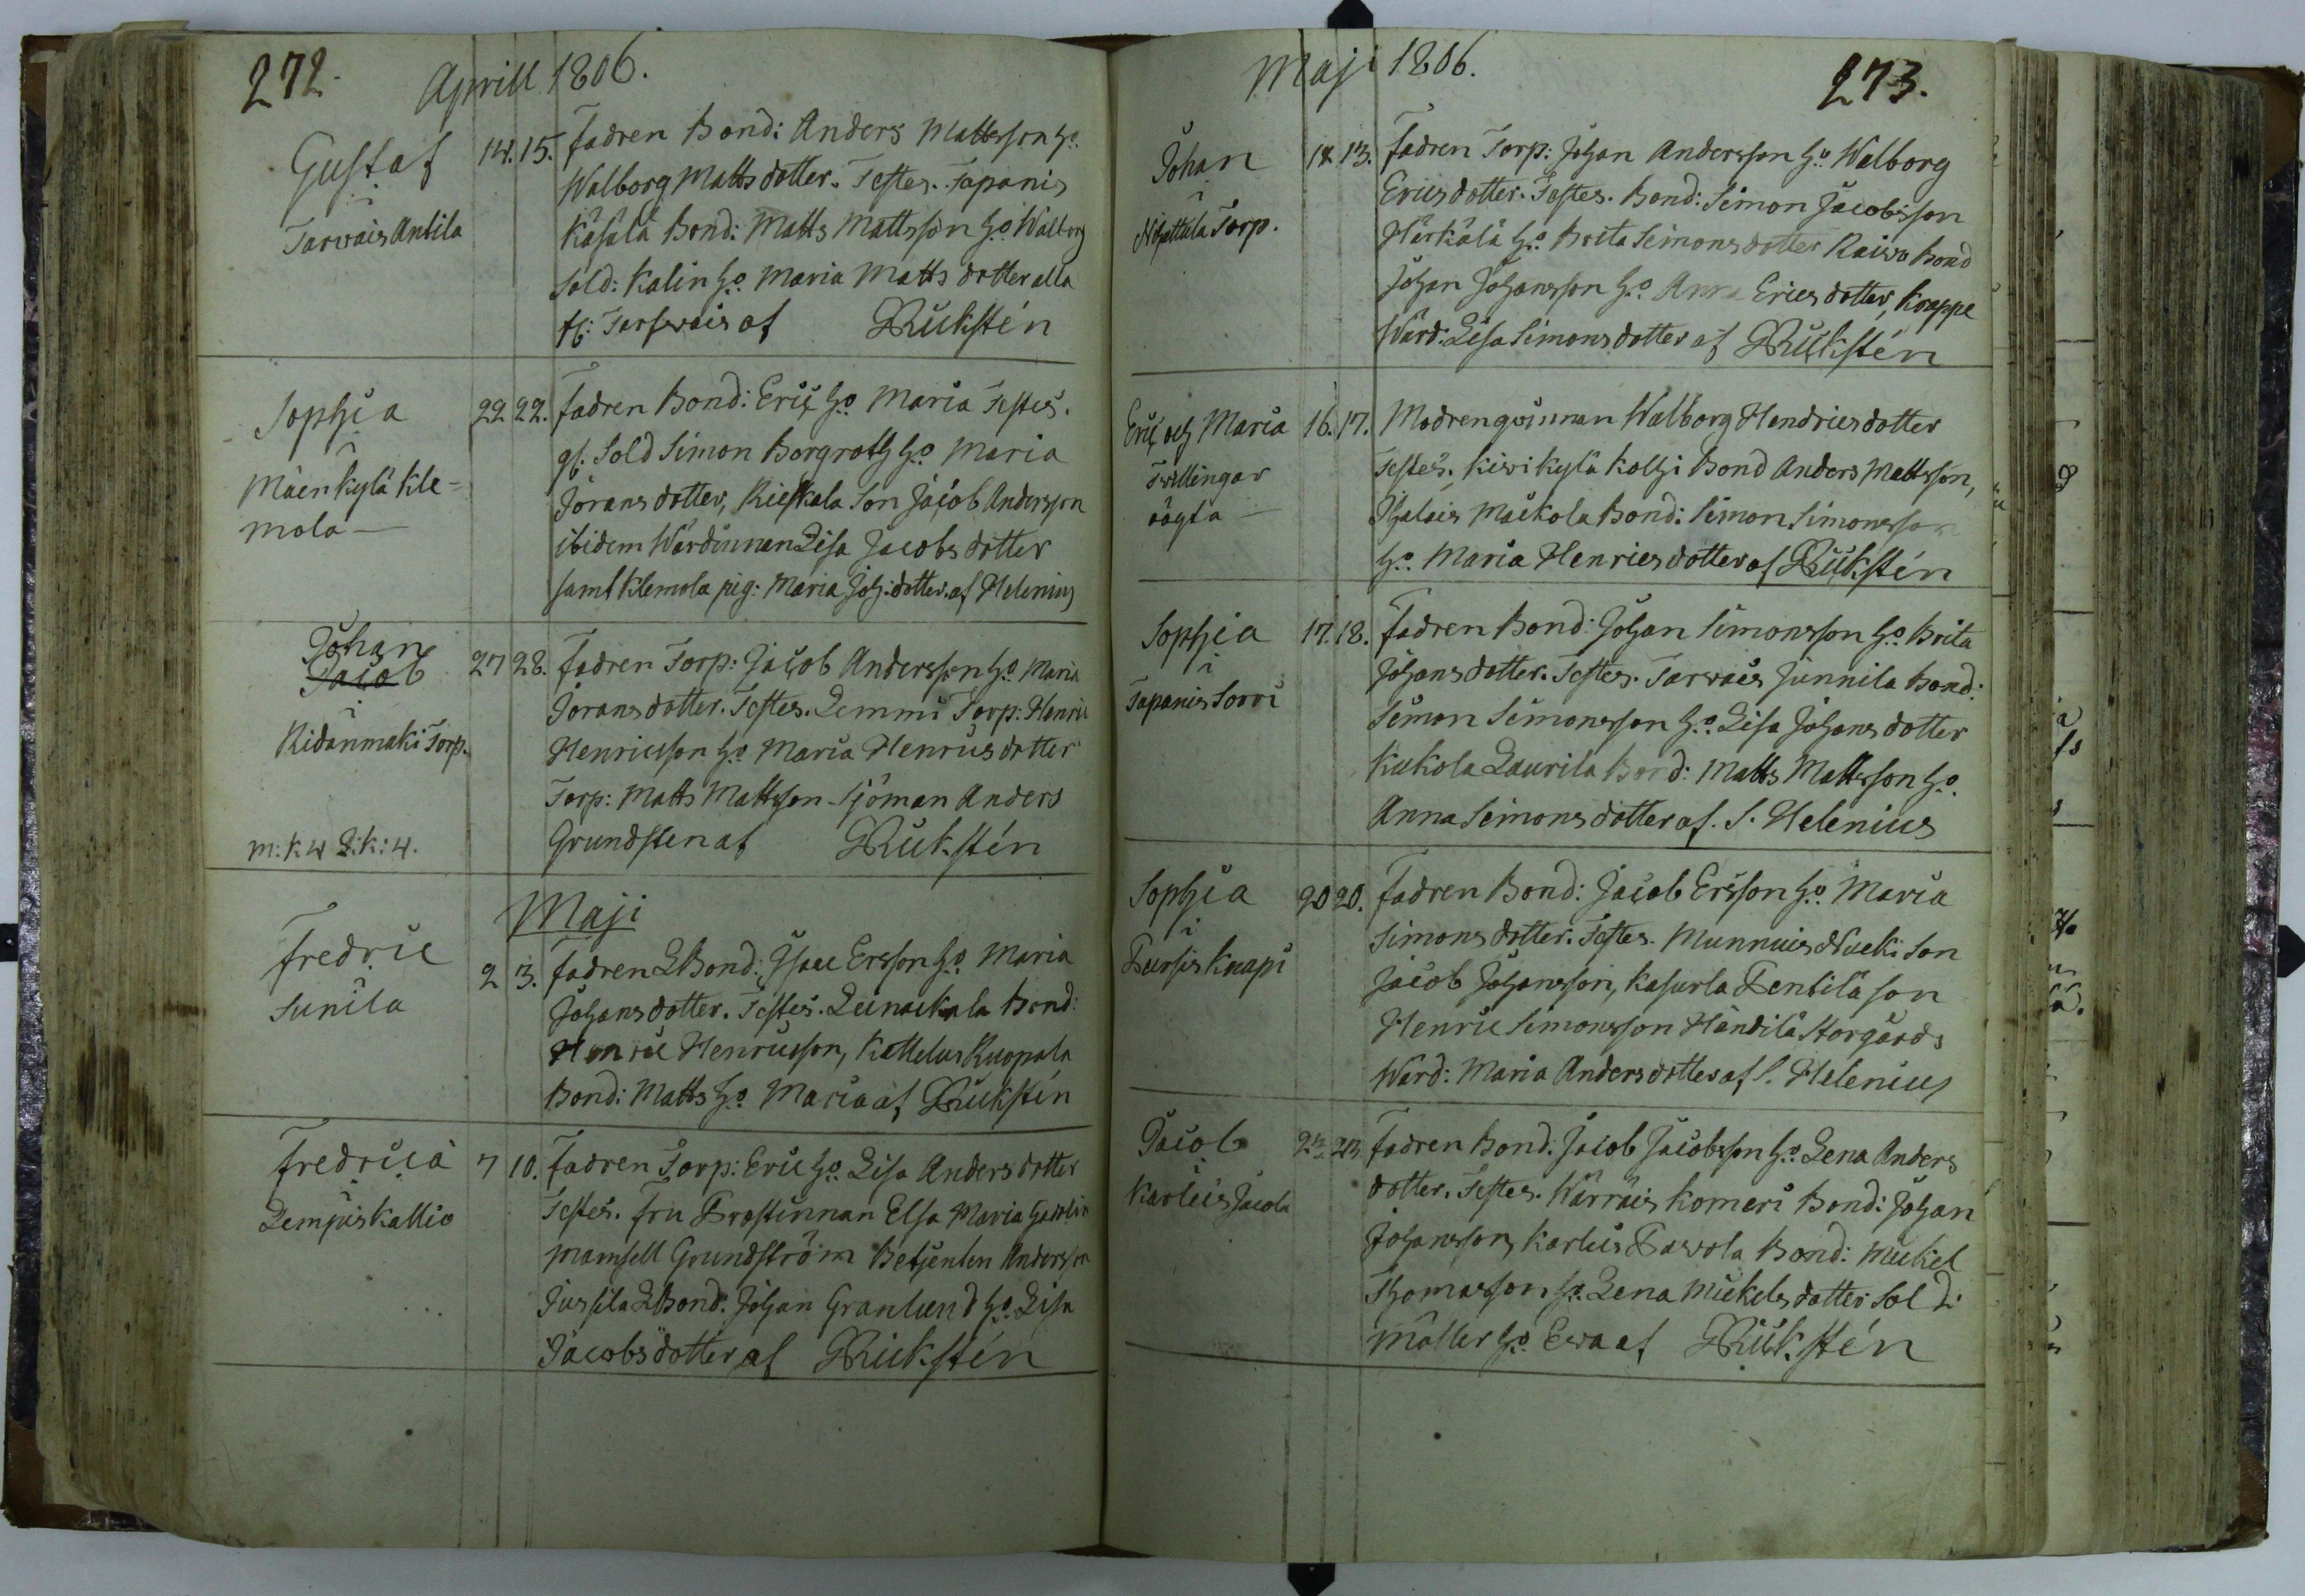 272.
Aprill 1806.
Gustaf
i
Tarvais Antila
14. 15. Fadren Bond: Anders Mattsson Ho
Walborg Matts dotter. Testes. Tapanis
Käsälä Bond: Matts Mattsson Ho Walborg
Sold: Kalin Ho Maria Matts dotter alla
fr: Tarfwais af GRickstén
Sophia
i
Mäenkylä Kle=
mola
22 22. Fadren Bond: Eric Ho Maria Testes.
gl: Sold Simon Borgroth Ho Maria
Jörans dotter, Rieskala Son Jacob Andersson
ibidem Wärdinnan Lisa Jacobs dotter
samt Klemola pig: Maria Joh: dotter. af Helenius
Johan
Jacob
i
Ridanmäki Torp.
m: k 4 L: k: 4.
27 28. Fadren Torp: Jacob Andersson Ho Maria
Jörans dotter. Testes. Lemmi Torp: Henric
Henricsson Ho Maria Henrics dotter
Torp: Matts Mattsson Sjöman Anders
Grundsten af GRickstén
Maji
Fredric
Sunila
2 3. Fadren LBond: Isaac Ersson Ho Maria
Johans dotter. Testes. Leinackala Bond:
Henric Henricsson, Kattelus Ruopala
Bond: Matts Ho Maria af GRickstén
Fredrica
i
Lempis Kallio
7 10. Fadren Torp: Eric Ho Lisa Anders dotter
Testes. Fru Prostinnan Elsa Maria
Mamsell Grundström Betjenten Andersson
Jussila LBond. Johan Granlund Ho Lisa
Jacobs dotter af GRickstén
Maji 1806.
273.
Johan
i
Nihattula Torp.
12. 13. Fadren Torp: Johan Andersson Ho Walborg
Erics dotter. Testes. Bond: Simon Jacobsson
Härkälä Ho Brita Simons dotter Raiwo Bond
Johan Johansson Ho Anna Erics dotter, Knappe
Wärd: Lisa Simons dotter af GRickstén
Eric och Maria
Twillingar
oägta
16. 17. Modren qvinnan Walborg Hendrics dotter
Testes, Kiwikylä Kolhi Bond Anders Mattsson,
Ihalais Maikola Bond: Simon Simonsson
Ho Maria Henrics dotter af GRickstén
Sophia
i
Tapanis Sorri
17. 18. Fadren Bond: Johan Simonsson Ho Brita
Johans dotter. Testes. Tarvais Junnila Bond:
Simon Simonsson Ho Lisa Johans dotter
Kukola Laurila Bond: Matts Mattsson Ho
Anna Simons dotter af. S. Helenius
Sophia
i
Pursis Knapi
20 20. Fadren Bond: Jacob Ersson Ho Maria
Simons dotter. Testes. Munnuis Nucki Son
Jacob Johansson, Kasurla Pentilä son
Henric Simonsson Händilä Storgårds
Wärd: Maria Anders dotter af S. Helenius
Jacob
i
Karleis Jacola
23. 23. Fadren Bond. Jacob Jacobsson Ho Lena Anders
dotter. Testes. Wärräis Komeri Bond: Johan
Johansson, Karleis Pawola Bond: Mickel
Thomasson Ho Lena Mickels dotter Sold:
Möller Ho Ewa af GRickstén